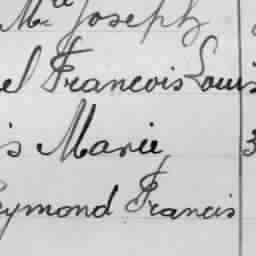 Mce Joseph
el Francois Louis
is Marie 3
eymond Francis